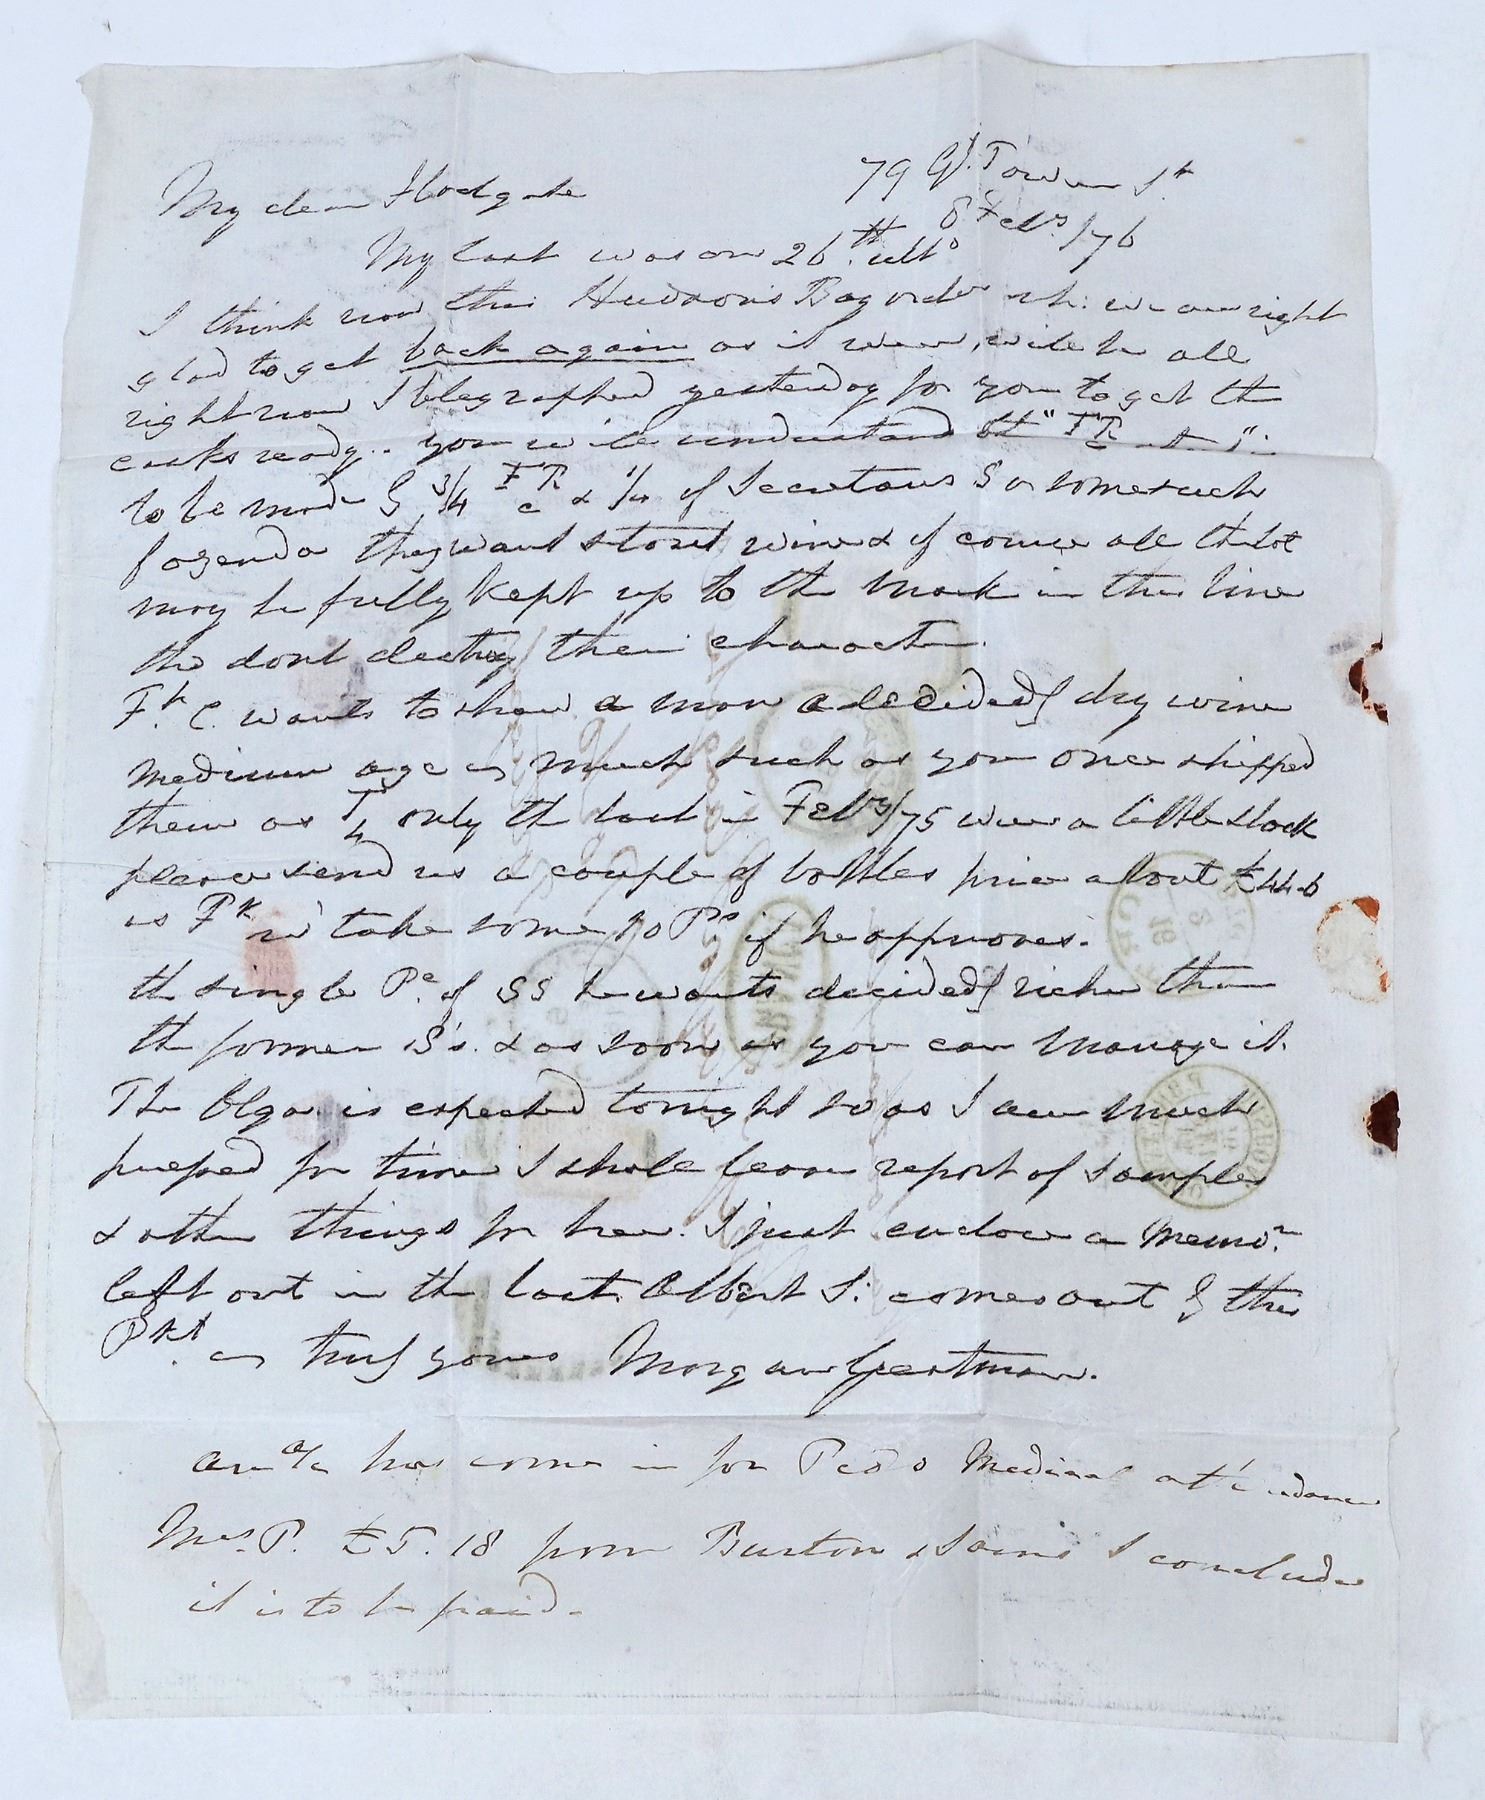 79 Gt. Tower St
8 Feby /76
My dear Flodgate
My last was on 26th. ulto
I think now this Hudson's Bay order wh: we are right
glad to get back again as it were, will be all
right now I telegraphed yesterday for you to get the
casks ready. you will understand tht "FR
to be made 3/4 FR c & 1/4 of S or some such
fazenda they want stout wine & of course all the lot
may be fully kept up to the mark in this line
tho dont destroy their character.
Fk. C. wants to show a man a decided dry wine
medium age as much such as you once shipped
them as only the last in Feby/75 were a little slack
please send us a couple of bottles price about £44.
as Fk wd take some 10 Ps if he approves.
the single Pe. of SS he wants decidedly richer than
the former S's. & as soon as you can manage it.
The Olga is expected tonight so as I am much
pressed for time I shall leave report of samples
& other things for her. I just enclose a Memo.
left out in the last. Albert S: comes out by this
Pkt. as truly yours Morgan
an a/c has come in for Pedo Medical attendance
Mrs. P. £5.18 from Burton & Sons I conclude
it is to be paid.